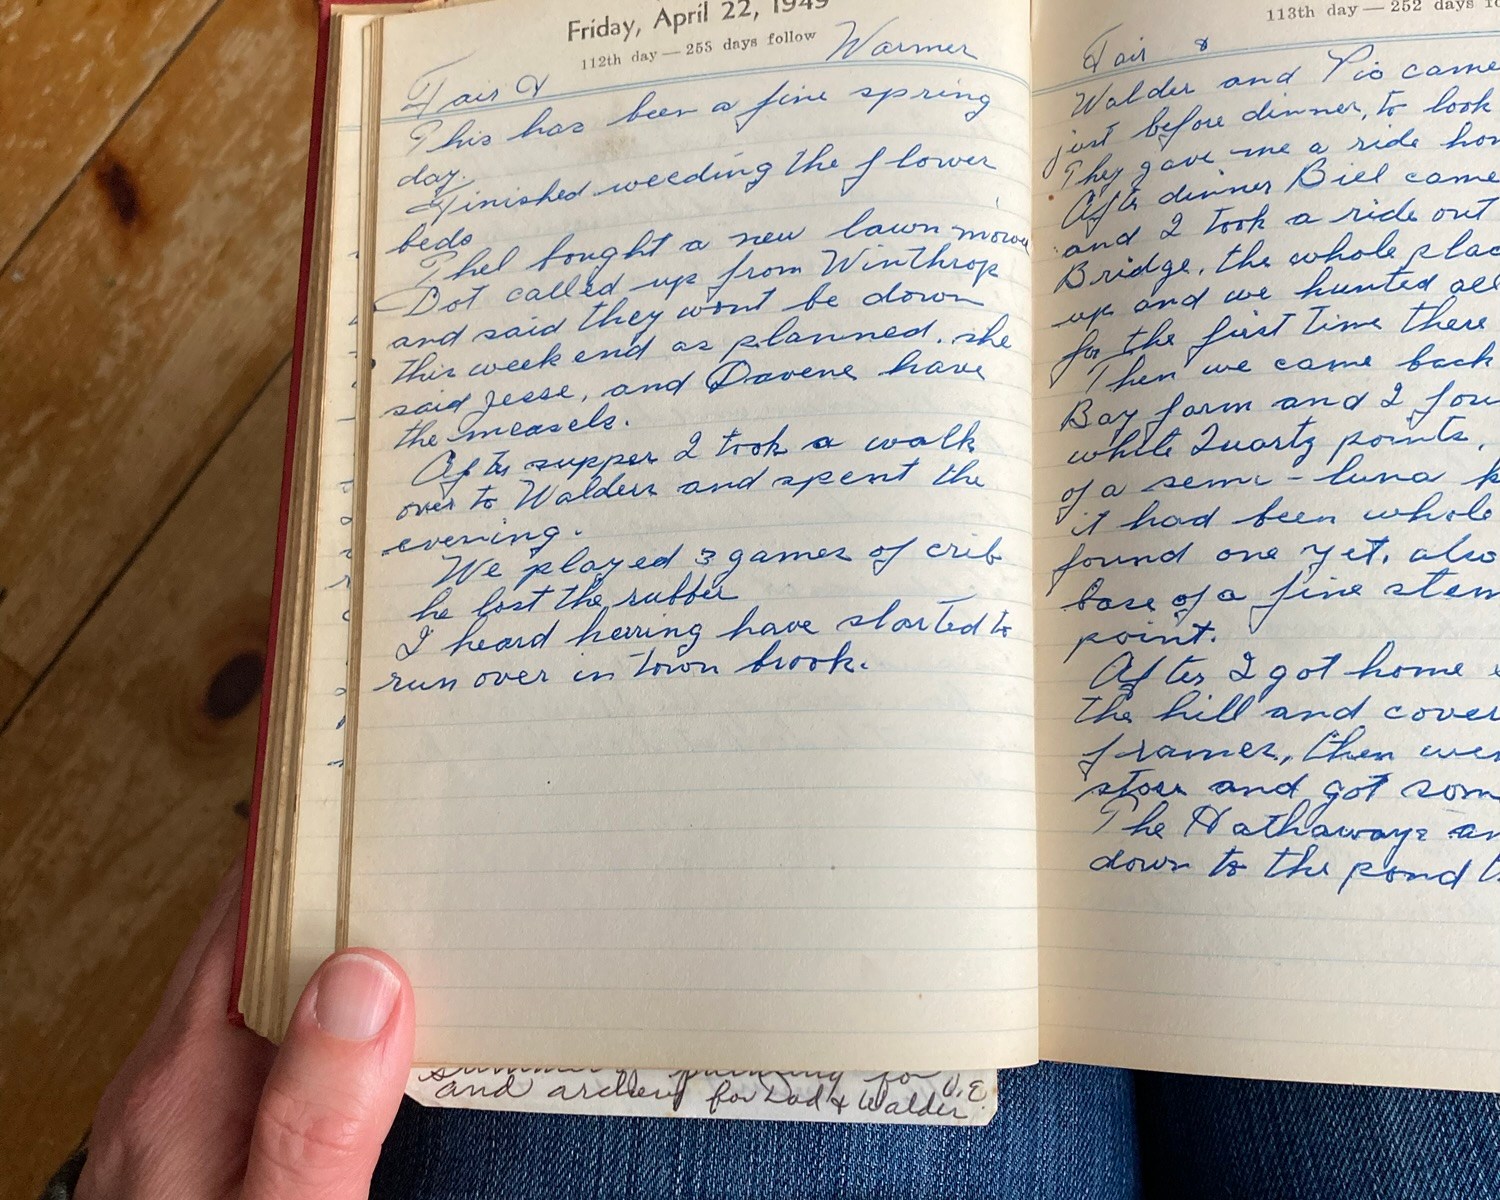 Friday, April 22, 1949
112th day — 253 days follow
Fair & Warmer
This has been a fine spring
day.
Finished weeding the flower
beds
Thel bought a new lawn mower
Dot called up from Winthrop
and said they wont be down
this week end as planned. she
said Jesse, and Davene have
the measels.
After supper I took a walk
over to Walders and spent the
evening.
We played 3 games of crib
he lost the rubber
I heard herring have started to
run over in town brook.
and archery for Dad & Walder.
113th day — 252 days
Fair &
Walder and Pio came
just before dinner, to look
They gave me a ride
After dinner Bill came
and I took a ride out
Bridge, the whole
up and we hunted
for the first time there
Then we came back
Bay farm and I
white Quartz points,
of a semi-luna
it had been whole
found one yet, also
base of a fine stem
point.
After I got home
the hill and
frames, then
store and got
The Hathaways
down to the pond